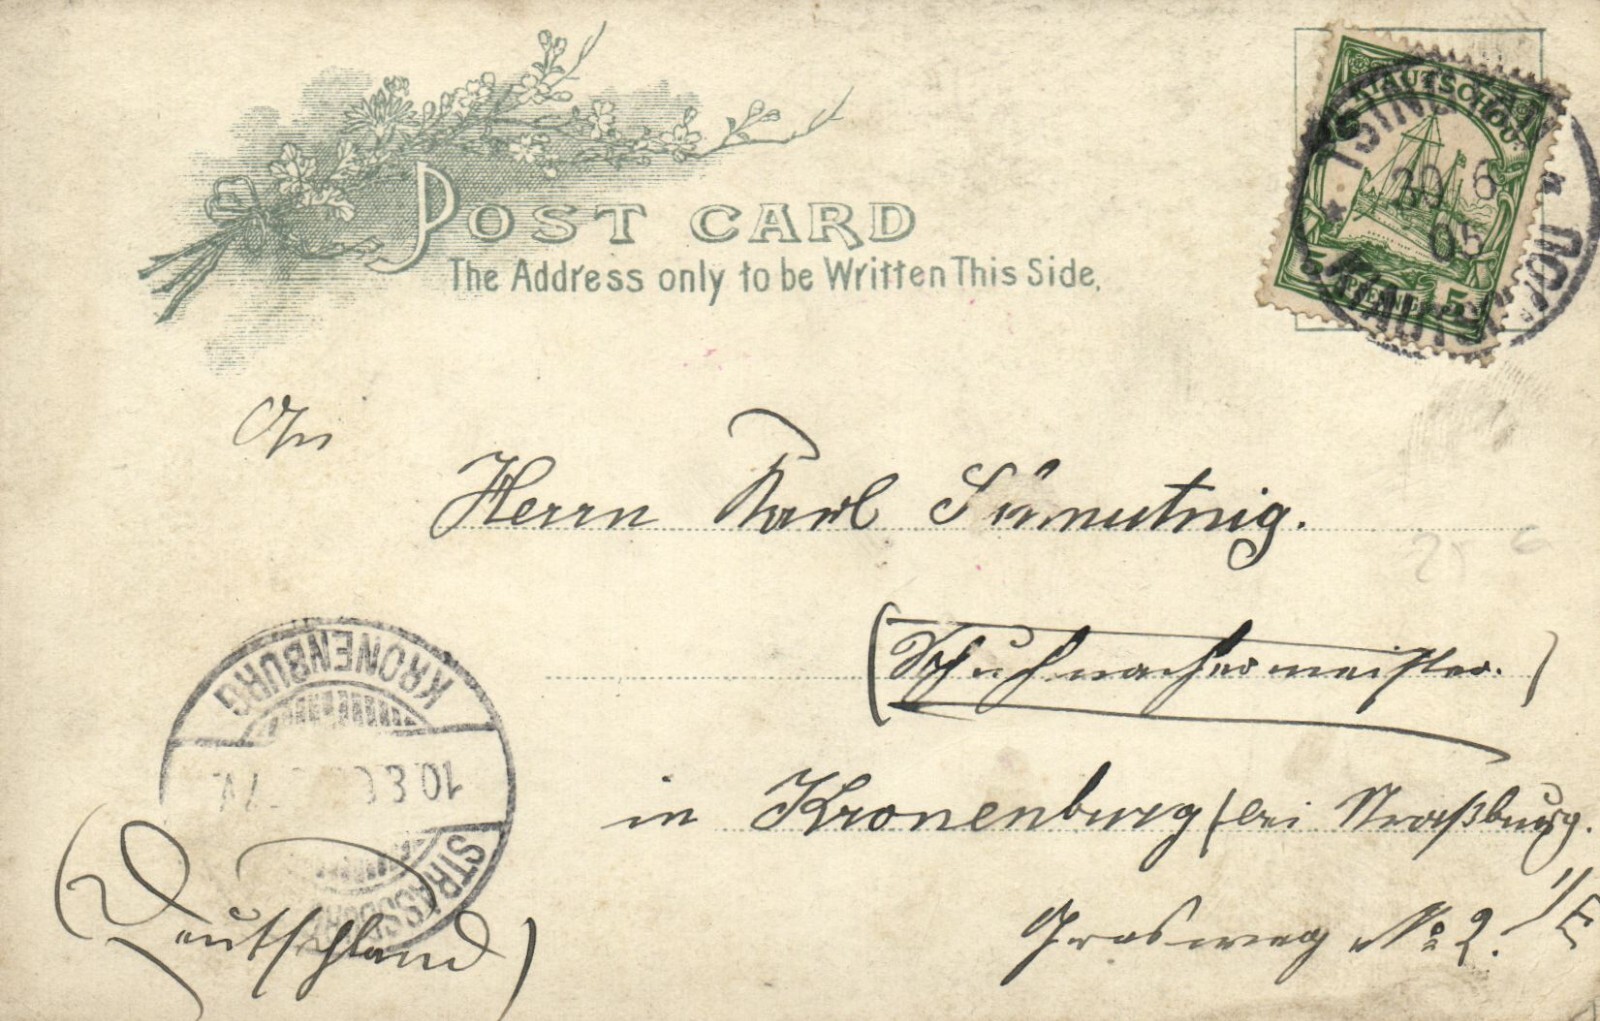 POST CARD
The Address only to be Written This Side.
KIAUTSCHOU
5 PFENNIG 5
TSINGTAU
30 6
05
KIAUTSCHOU
An
Herrn Karl
(Schuhmachermeister.)
in Kronenburg / bei Straßburg.
Grasweg No 2. i/E
(Deutschland)
KRONENBURG
10.8
STRASSBURG